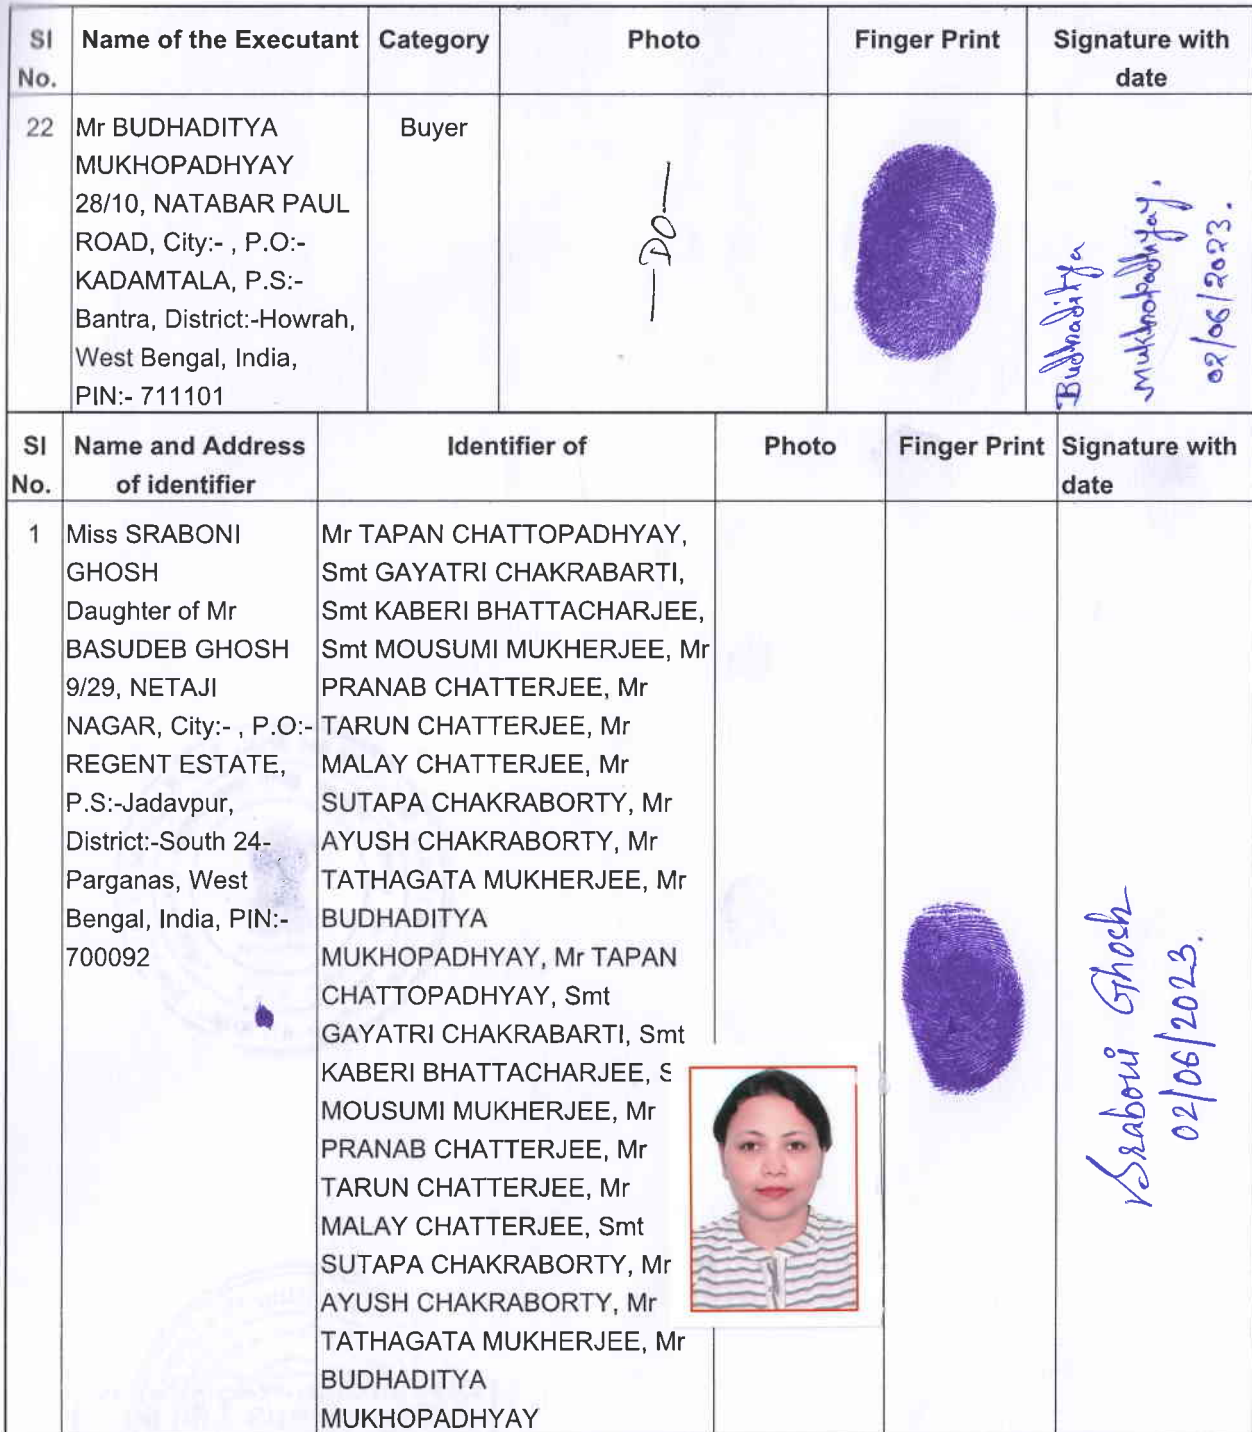 Sl Name of the Executant Category Photo Finger Print Signature with
No. date
22 Mr BUDHADITYA Buyer
MUKHOPADHYAY
28/10, NATABAR PAUL
ROAD, City:- , P.O:-
KADAMTALA, P.S:-
Bantra, District:-Howrah,
West Bengal, India,
PIN:- 711101
—DO—
Budhaditya
Mukhopadhyay.
02/06/2023.
Sl Name and Address Identifier of Photo Finger Print Signature with
No. of identifier date
1 Miss SRABONI
GHOSH
Daughter of Mr
BASUDEB GHOSH
9/29, NETAJI
NAGAR, City:- , P.O:-
REGENT ESTATE,
P.S:-Jadavpur,
District:-South 24-
Parganas, West
Bengal, India, PIN:-
700092
Mr TAPAN CHATTOPADHYAY,
Smt GAYATRI CHAKRABARTI,
Smt KABERI BHATTACHARJEE,
Smt MOUSUMI MUKHERJEE, Mr
PRANAB CHATTERJEE, Mr
TARUN CHATTERJEE, Mr
MALAY CHATTERJEE, Mr
SUTAPA CHAKRABORTY, Mr
AYUSH CHAKRABORTY, Mr
TATHAGATA MUKHERJEE, Mr
BUDHADITYA
MUKHOPADHYAY, Mr TAPAN
CHATTOPADHYAY, Smt
GAYATRI CHAKRABARTI, Smt
KABERI BHATTACHARJEE, S
MOUSUMI MUKHERJEE, Mr
PRANAB CHATTERJEE, Mr
TARUN CHATTERJEE, Mr
MALAY CHATTERJEE, Smt
SUTAPA CHAKRABORTY, Mr
AYUSH CHAKRABORTY, Mr
TATHAGATA MUKHERJEE, Mr
BUDHADITYA
MUKHOPADHYAY
Sraboni Ghosh
02/06/2023.